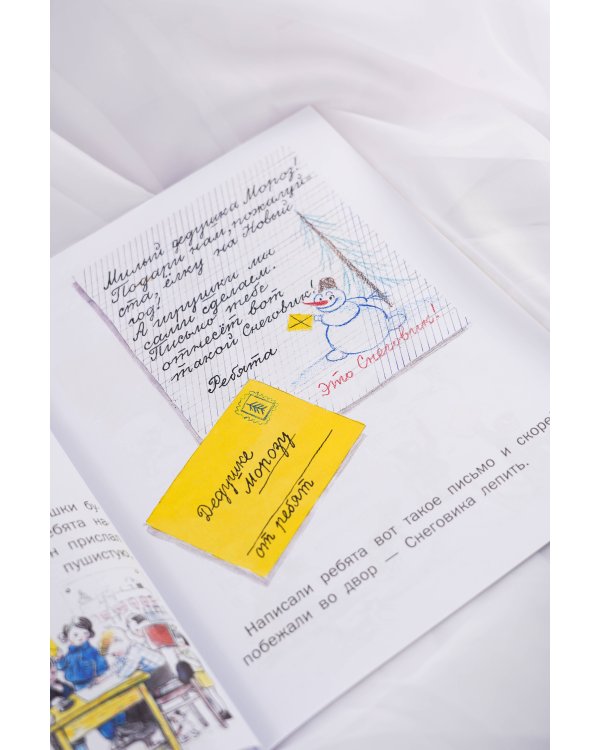 Милый дедушка Мороз!
Подари нам, пожалуй-
ста, ёлку на Новый
год!
А игрушки мы
сами сделаем.
Письмо тебе
отнесёт вот
такой Снеговик!
Ребята
Это Снеговик!
Дедушке
Морозу
от ребят
Написали ребята вот такое письмо и скоре
побежали во двор — Снеговика лепить.
шки бу
ебята на
н прислал
пушистую,